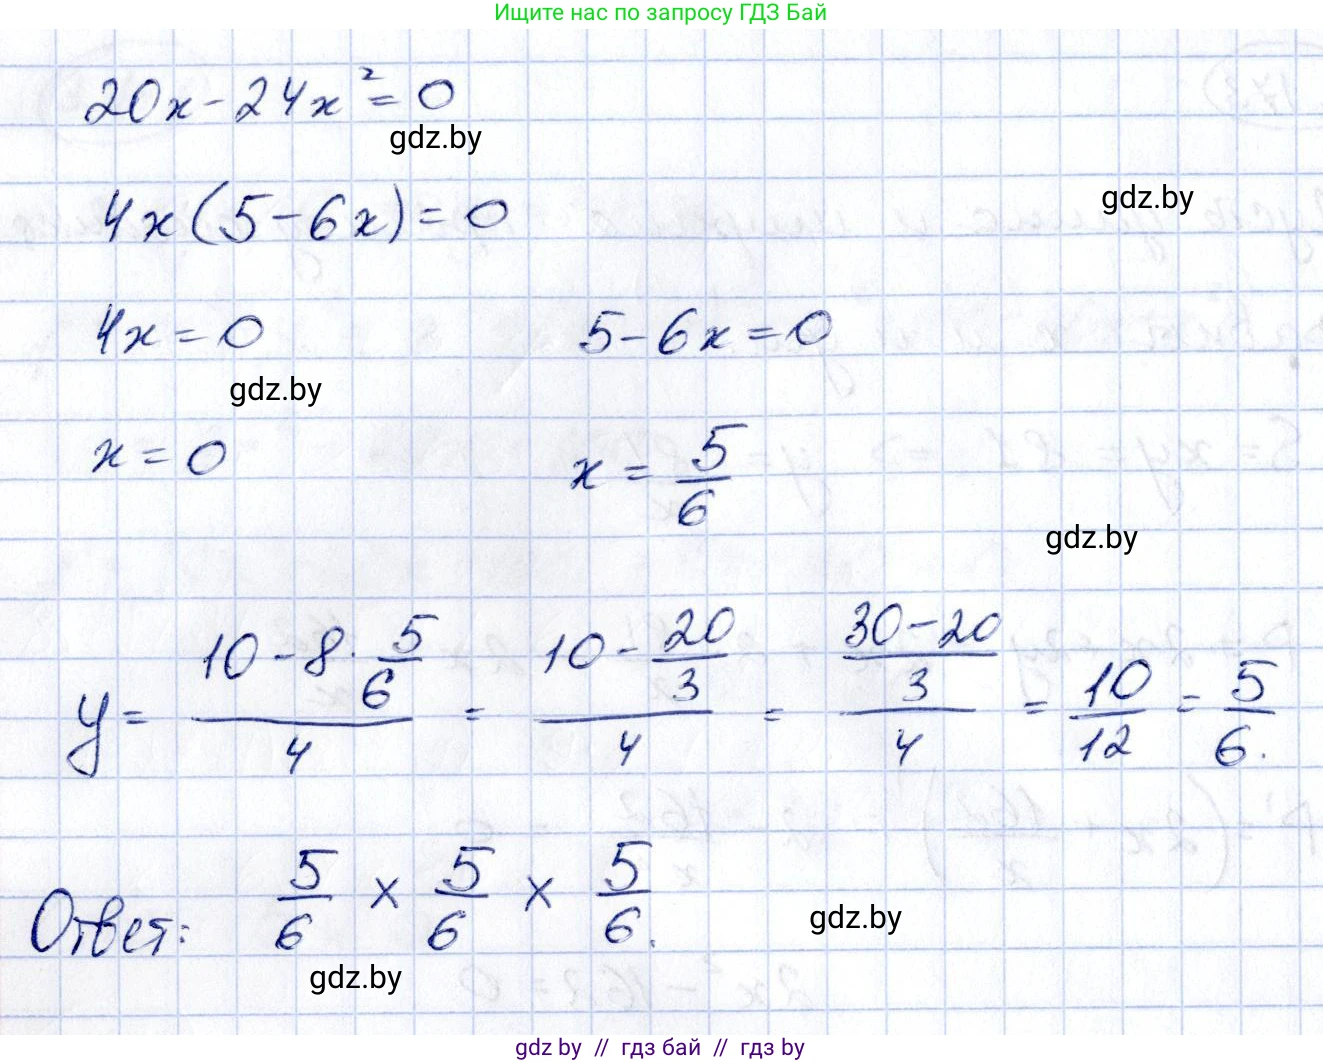 Ищите нас по запросу ГДЗ Бай
20x - 24x² = 0
gdz.by
4x(5 - 6x) = 0
gdz.by
4x = 0 5 - 6x = 0
gdz.by
x = 0 x = 5/6
gdz.by
y = (10 - 8 · 5/6)/4 = (10 - 20/3)/4 = ((30 - 20)/3)/4 = 10/12 = 5/6.
Ответ: 5/6 × 5/6 × 5/6.
gdz.by
gdz.by
gdz by // гдз бай // гдз by